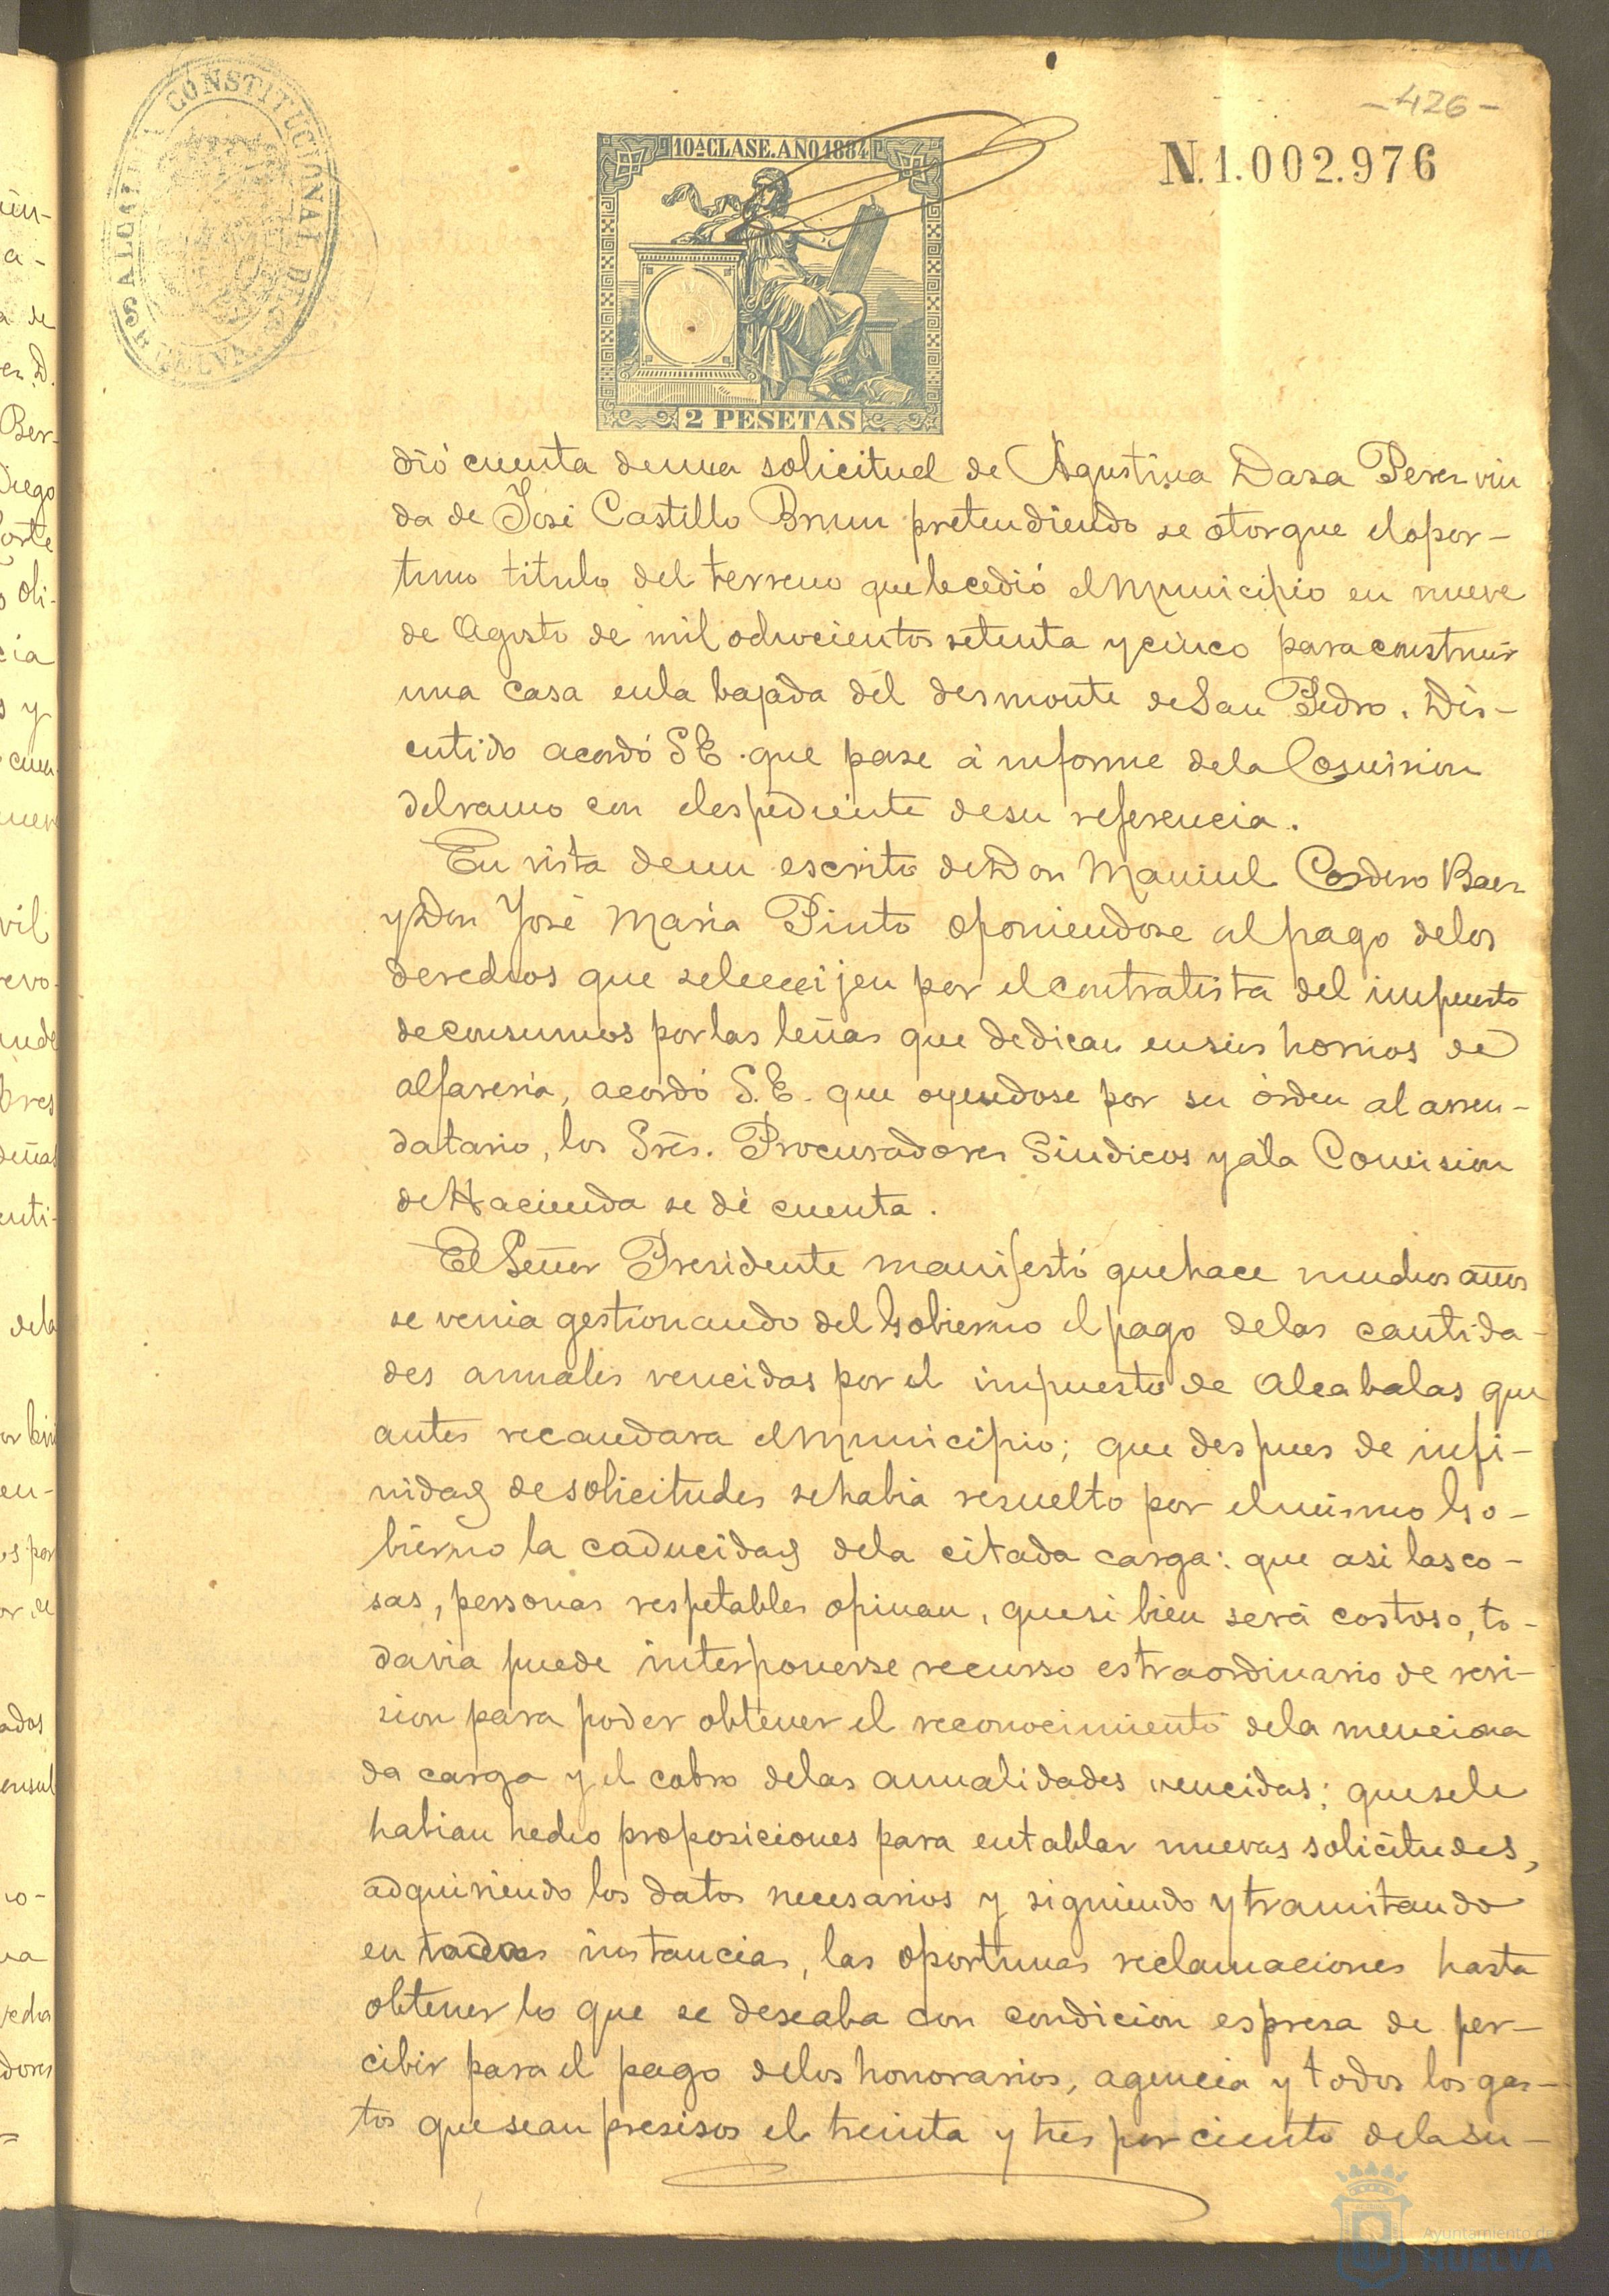 -426-
ALCALDIA CONSTITUCIONAL DE HUELVA
10ª CLASE. AÑO 1884
N.1.002.976
2 PESETAS
dió cuenta de una solicitud de Agustina Daza Perez viu
da de José Castillo Brun pretendiendo se otorgue el opor-
tuno titulo del terreno que le cedió el Municipio en nueve
de Agosto de mil ochocientos setenta y cinco para construir
una casa en la bajada del desmonte de San Pedro. Dis-
cutido acordó S E. que pase á informe de la Comision
del ramo con el espediente de su referencia.
En vista de un escrito de Don Manuel Cordero Baez
y Don José Maria Pinto oponiendose al pago de los
derechos que se les exijen por el contratista del impuesto
de consumos por las leñas que dedican en sus hornos de
alfareria, acordó S. E. que oyendose por su órden al arren-
datario, los Sres. Procuradores Sindicos y á la Comision
de Hacienda se dé cuenta.
El Señor Presidente manifestó que hace muchos años
se venia gestionando del Gobierno el pago de las cantida-
des anuales vencidas por el impuesto de Alcabalas que
antes recaudara el Municipio; que despues de infi-
nidad de solicitudes se habia resuelto por el mismo Go-
bierno la caducidad de la citada carga: que asi las co-
sas, personas respetables opinan, que si bien será costoso, to-
davia puede interponerse recurso estraordinario de revi-
sion para poder obtener el reconocimiento de la menciona
da carga y el cobro de las anualidades vencidas; que se le
habian hecho proposiciones para entablar nuevas solicitudes,
adquiriendo los datos necesarios y siguiendo y tramitando
en todas instancias, las oportunas reclamaciones hasta
obtener lo que se deseaba con condicion espresa de per-
cibir para el pago de los honorarios, agencia y todos los gas-
tos que sean presisos el treinta y tres por ciento de la su-
Ayuntamiento de
HUELVA